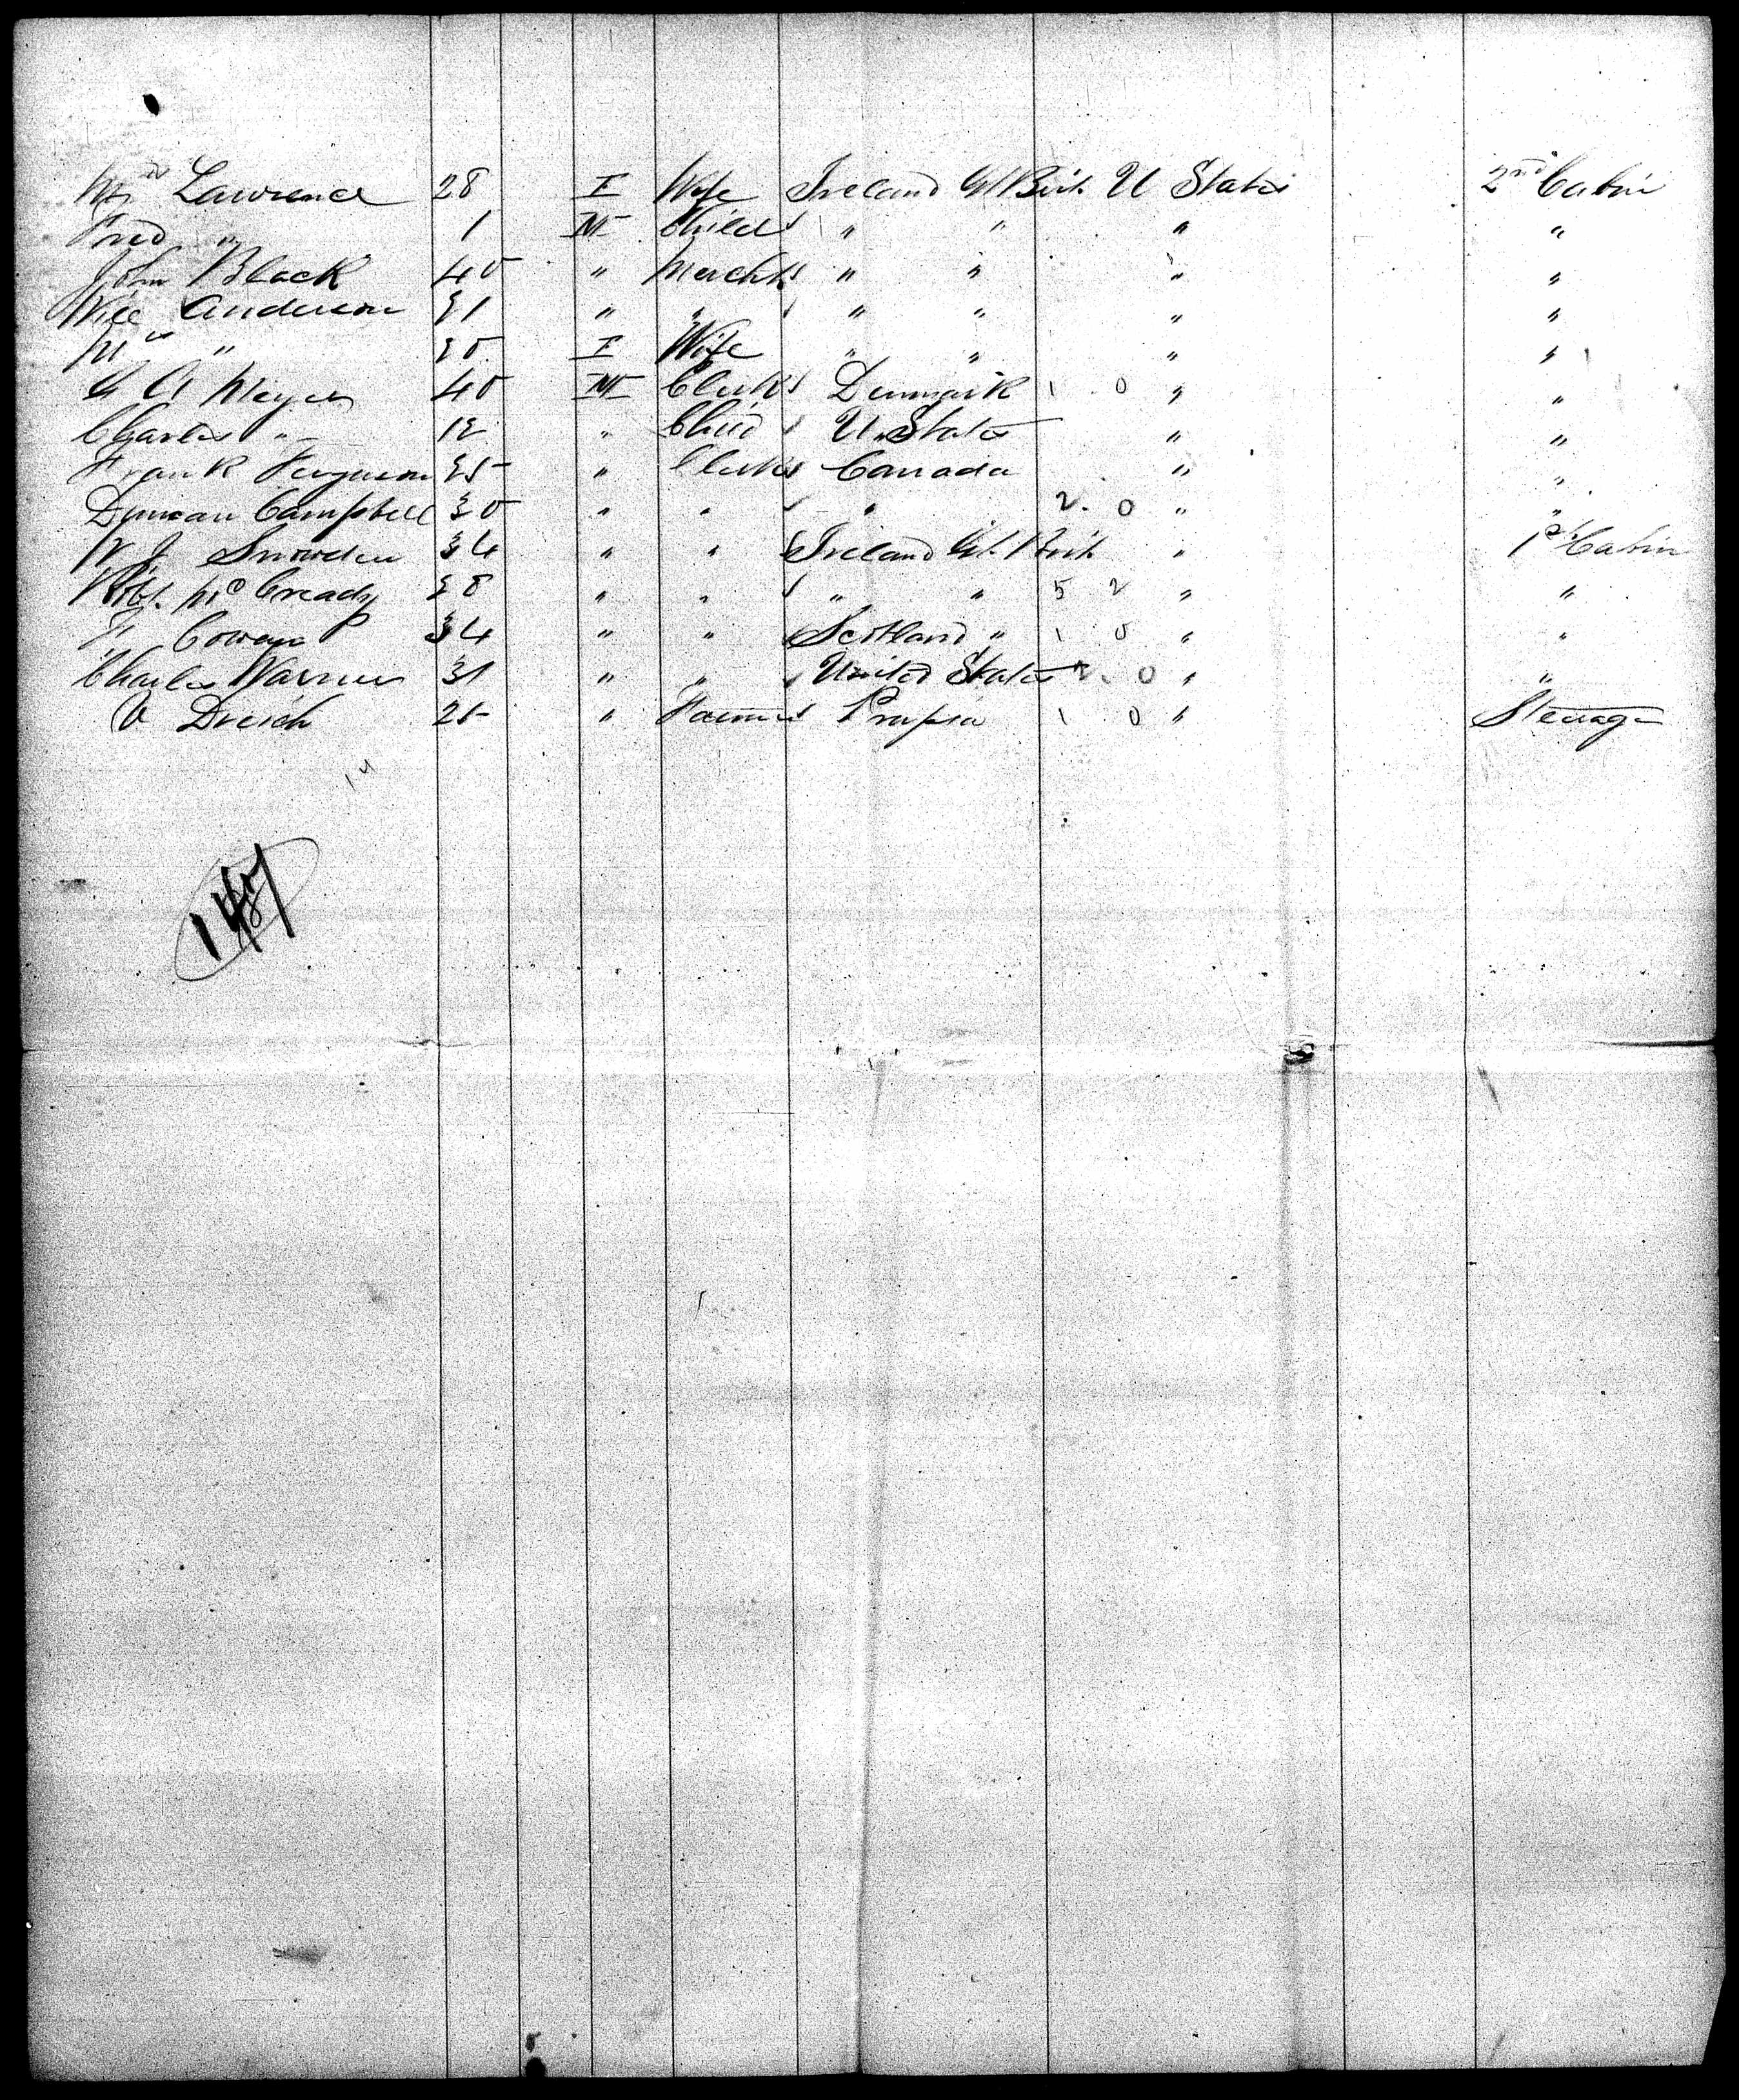 Mrs Lawrence 28 F Wife Ireland Gt Brit. U States 2nd Cabin
Fred " 1 M Child " " " "
John Black 40 " Mercht " " " "
Will Anderson 31 " " " " " "
Mrs " 30 F Wife " " " "
C A Meyer 40 M Clerk Denmark 1 0 " "
Charles " 12 " Child U. States " "
Frank Ferguson 35 " Clerk Canada " "
Duncan Campbell 30 " " " 2. 0 " "
W J Snowden 34 " " Ireland Gt. Brit " 1st Cabin
Robt. McCready 38 " " " " 5 2 " "
Cowan 34 " " Scotland " 1 0 " "
Charles Warner 31 " " United States 2. 0 " "
Dreich 25 " Farmer Prussia 1 0 " Steerage
14